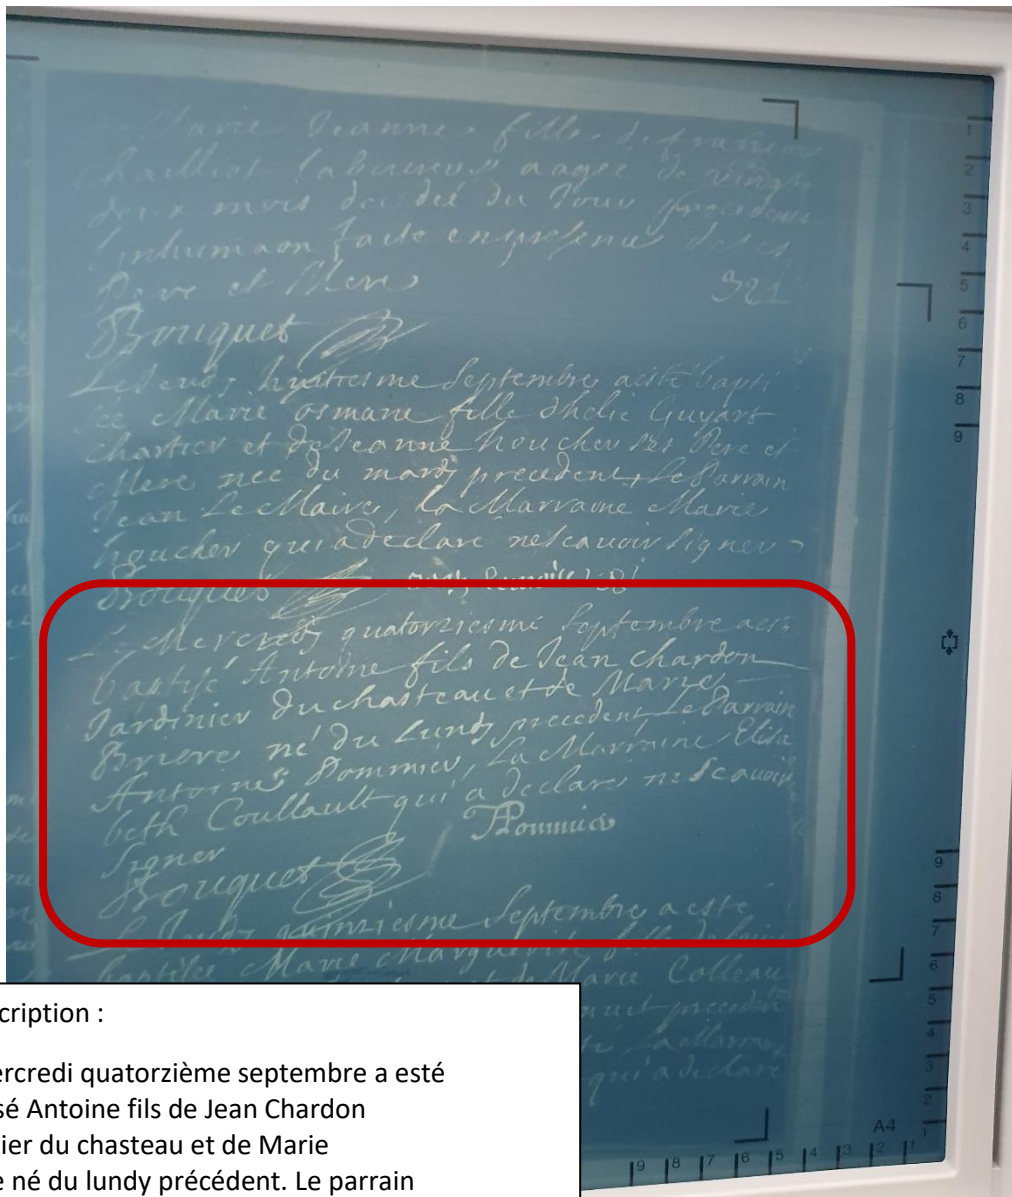 Marie Jeanne fille de fran
Chailliot laboureur aagée de vingt
deux mois decedée du Jour precedent
l'inhumaon faite en presence de ses
Pere et Mere
321
Bouquet
Le Jeudy huitiesme Septembre a esté bapti
sée Marie osmane fille d'helie Guyart
chartier et de Jeanne houcher ses Pere et
Mere née du mardy precedent, Le Parrain
Jean Le Maire, La Marraine Marie
houcher qui a declaré ne scavoir signer
Bouquet
Le Mercredy quatorziesme Septembre a esté
baptisé Antoine fils de Jean chardon
Jardinier du chasteau et de Marie
Briere né du Lundy precedent, Le Parrain
Antoine Pommier, La Marraine Elisa
beth Coullault qui a declaré ne Scavoir
signer
Pommier
Bouquet
Le Jeudy quinziesme Septembre a esté
baptisée Marie Marguerite fille
et de Marie Colleau
nuit precedent
La Marraine
qui a declaré
cription :
ercredi quatorzième septembre a esté
sé Antoine fils de Jean Chardon
ier du chasteau et de Marie
e né du lundy précédent. Le parrain
1
2
3
4
5
6
7
8
9
9
8
7
6
5
4
3
2
1
A4
9 8 7 6 5 4 3 2 1